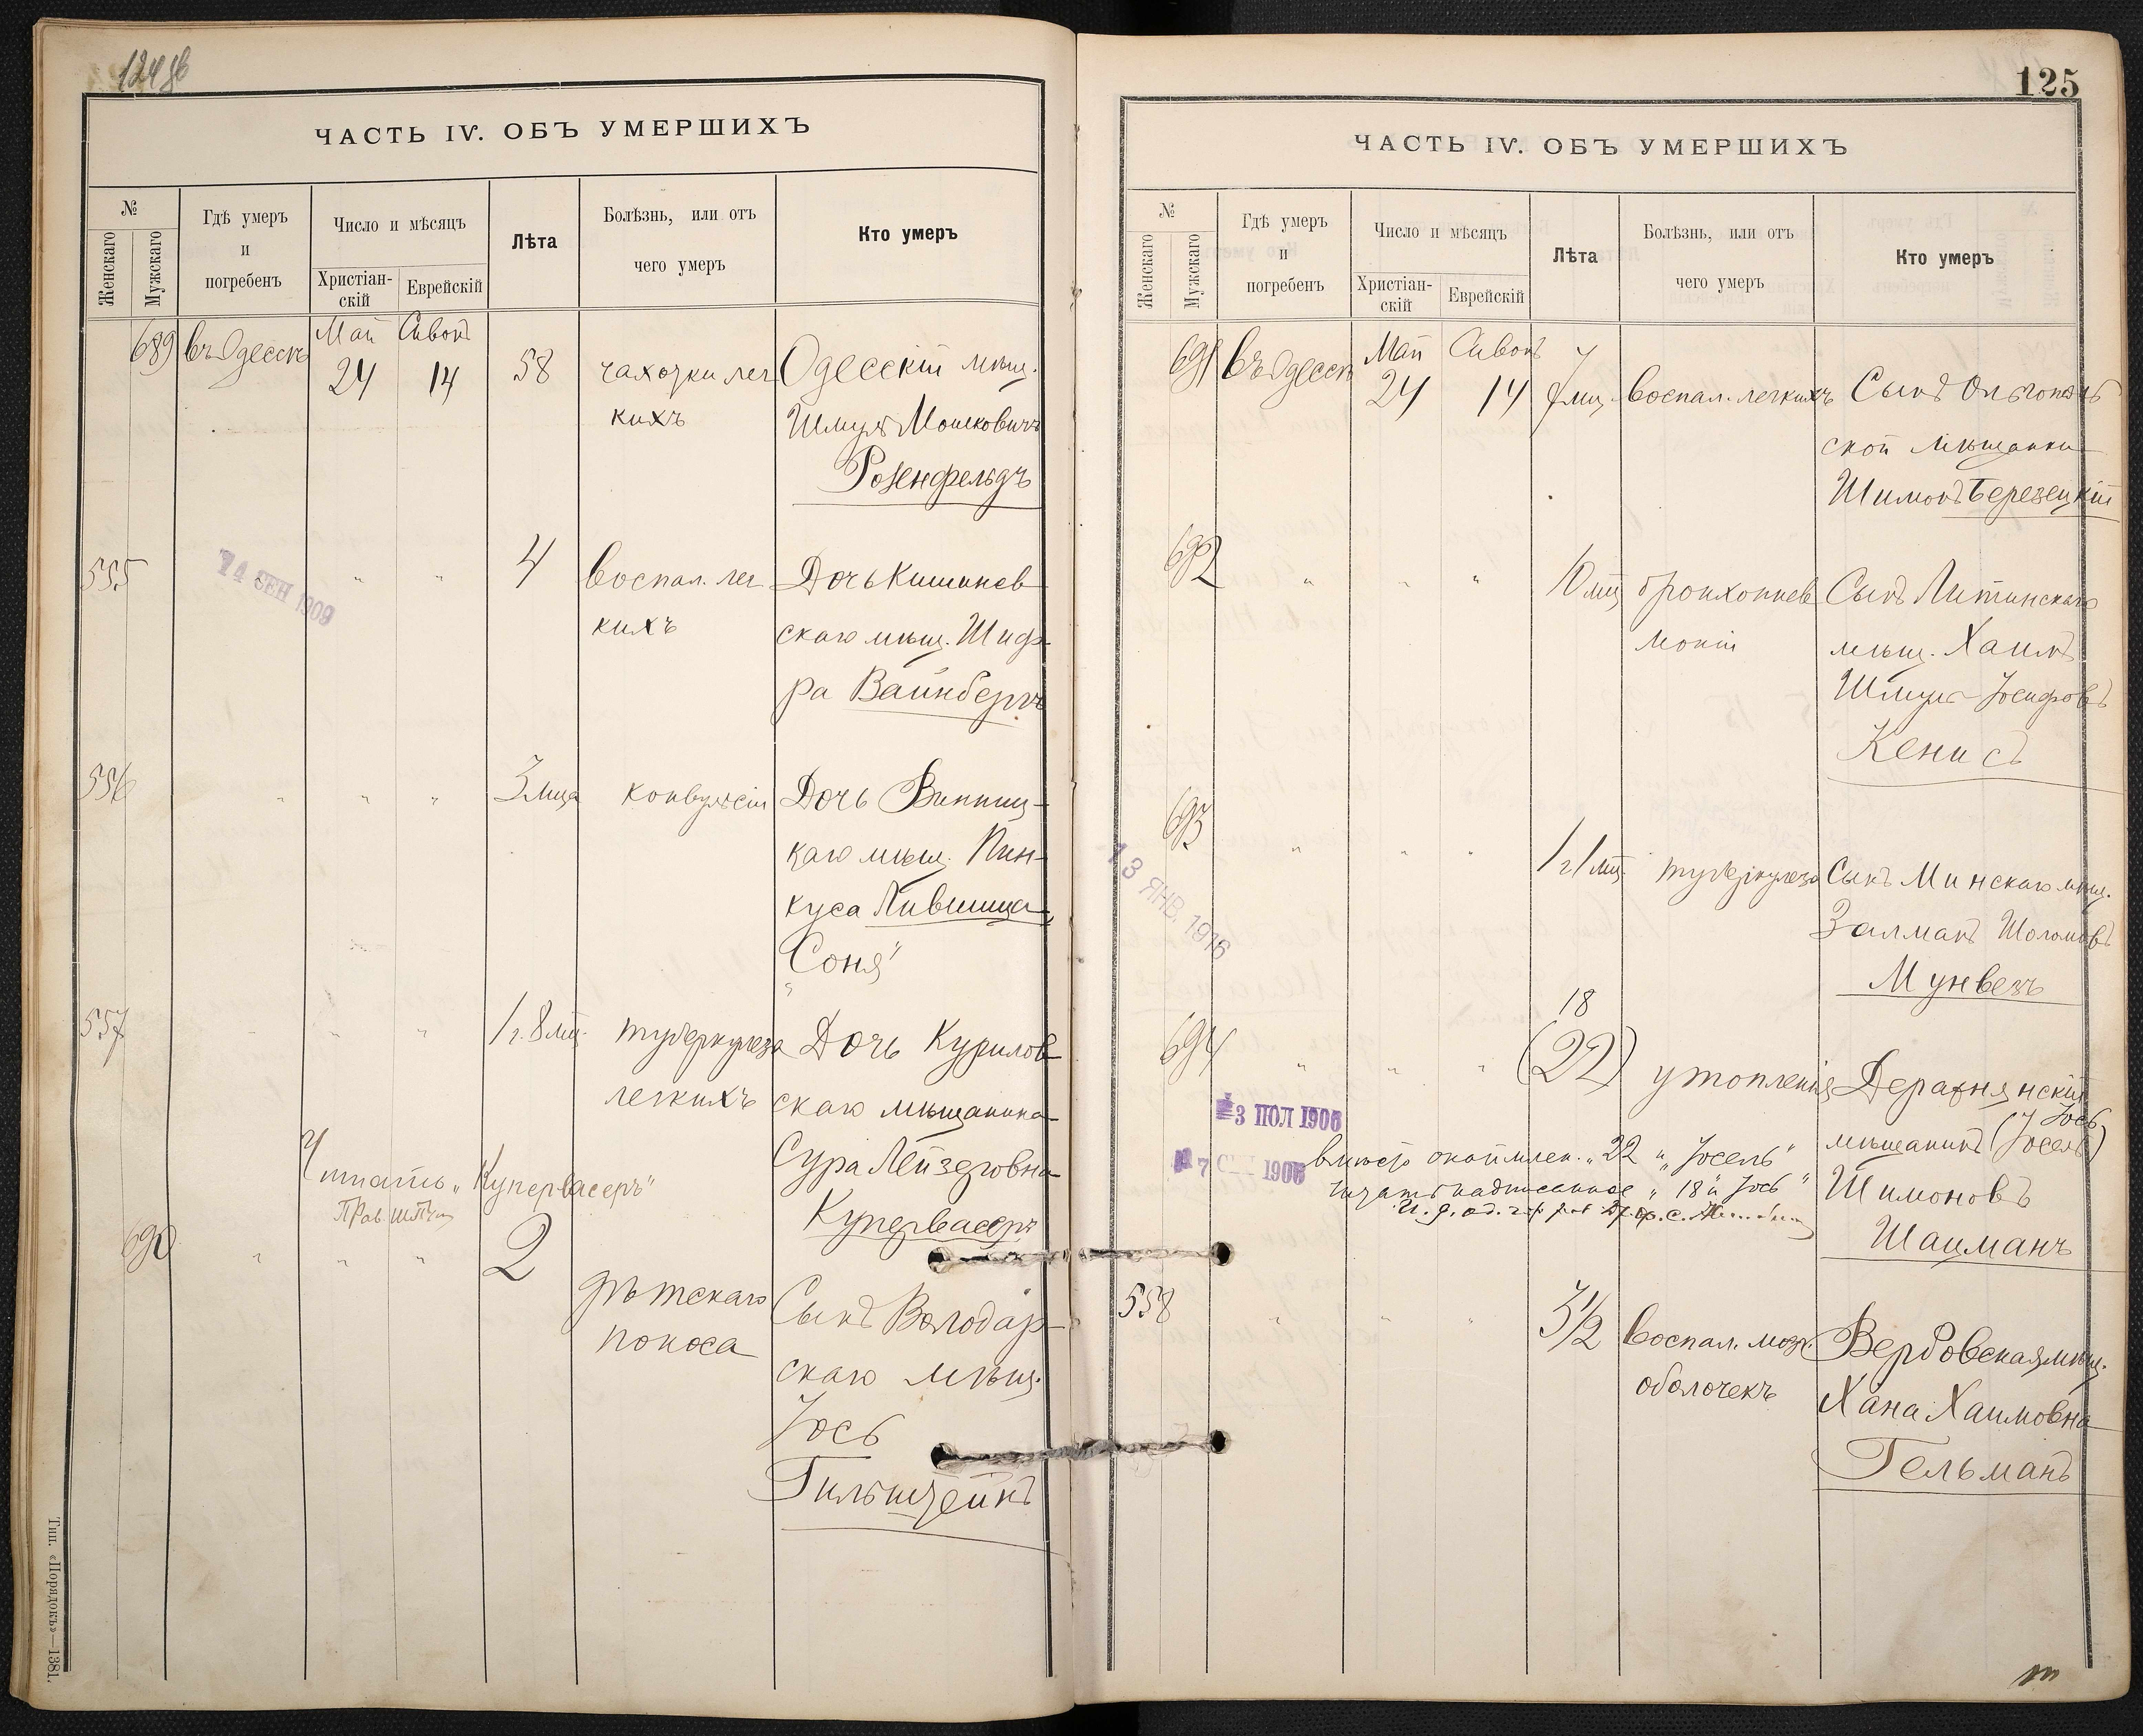 124 об
ЧАСТЬ IV. ОБЪ УМЕРШИХЪ
№
Женскаго
Мужскаго
Гдѣ умеръ
и
погребенъ
Число и мѣсяцъ
Христіан-
скій
Еврейскій
Лѣта
Болѣзнь, или отъ
чего умеръ
Кто умеръ
689 въ Одессѣ Май 24 Сивонъ 14 58 чахотки лег
кихъ
Одесскій мѣщ.
Шмуль Мошковичъ
Розенфельдъ
14 СЕН 1909
555 " " " 4 воспал. лег
кихъ
Дочь Кишинев
скаго мѣщ. Шиф-
ра Вайнбергъ
556 " " " 3 мца конвульсіи
Дочь Винниц-
каго мѣщ. Пин-
куса Лившица
"Соня"
557 " " " 1 г. 8 мц. туберкулеза
легкихъ
Дочь Курилов
скаго мѣщанина
Сура Лейзеровна
Купервасеръ
Читать "Купервасеръ"
690 " " " 2 дѣтскаго
поноса
Сынъ Володар-
скаго мѣщ.
Іось
Гильштейнъ
Тип. «Порядокъ»—1381.
125
ЧАСТЬ IV. ОБЪ УМЕРШИХЪ
№
Женскаго
Мужскаго
Гдѣ умеръ
и
погребенъ
Число и мѣсяцъ
Христіан-
скій
Еврейскій
Лѣта
Болѣзнь, или отъ
чего умеръ
Кто умеръ
691 въ Одессѣ Май 24 Сивонъ 14 7 мц. воспал. легкихъ
Сынъ Ольгополь
ской мѣщанки
Шимонъ Березецкій
692 " " " 10 мц бронхопнев
моніи
Сынъ Литинскаго
мѣщ. Хаимъ
Шмуль-Іосифовъ
Кенисъ
693 " " " 1 г 1 мц. туберкулеза
Сынъ Минскаго мѣщ.
Залманъ Шоломовъ
Мунвезъ
13 ЯНВ. 1916
694 " " " 18
(22) утопленія
Деражнянскій
Іось
мѣщанинъ (Іосель)
Шимоновъ
Шацманъ
3 ПОЛ 1906
7 1906
вмѣсто окаймлен. "22" "Іосель"
читать надписанное "18" "Іось"
558 " " " 3½ воспал. мозг.
оболочекъ
Вербовская мѣщ.
Хана Хаимовна
Гельманъ